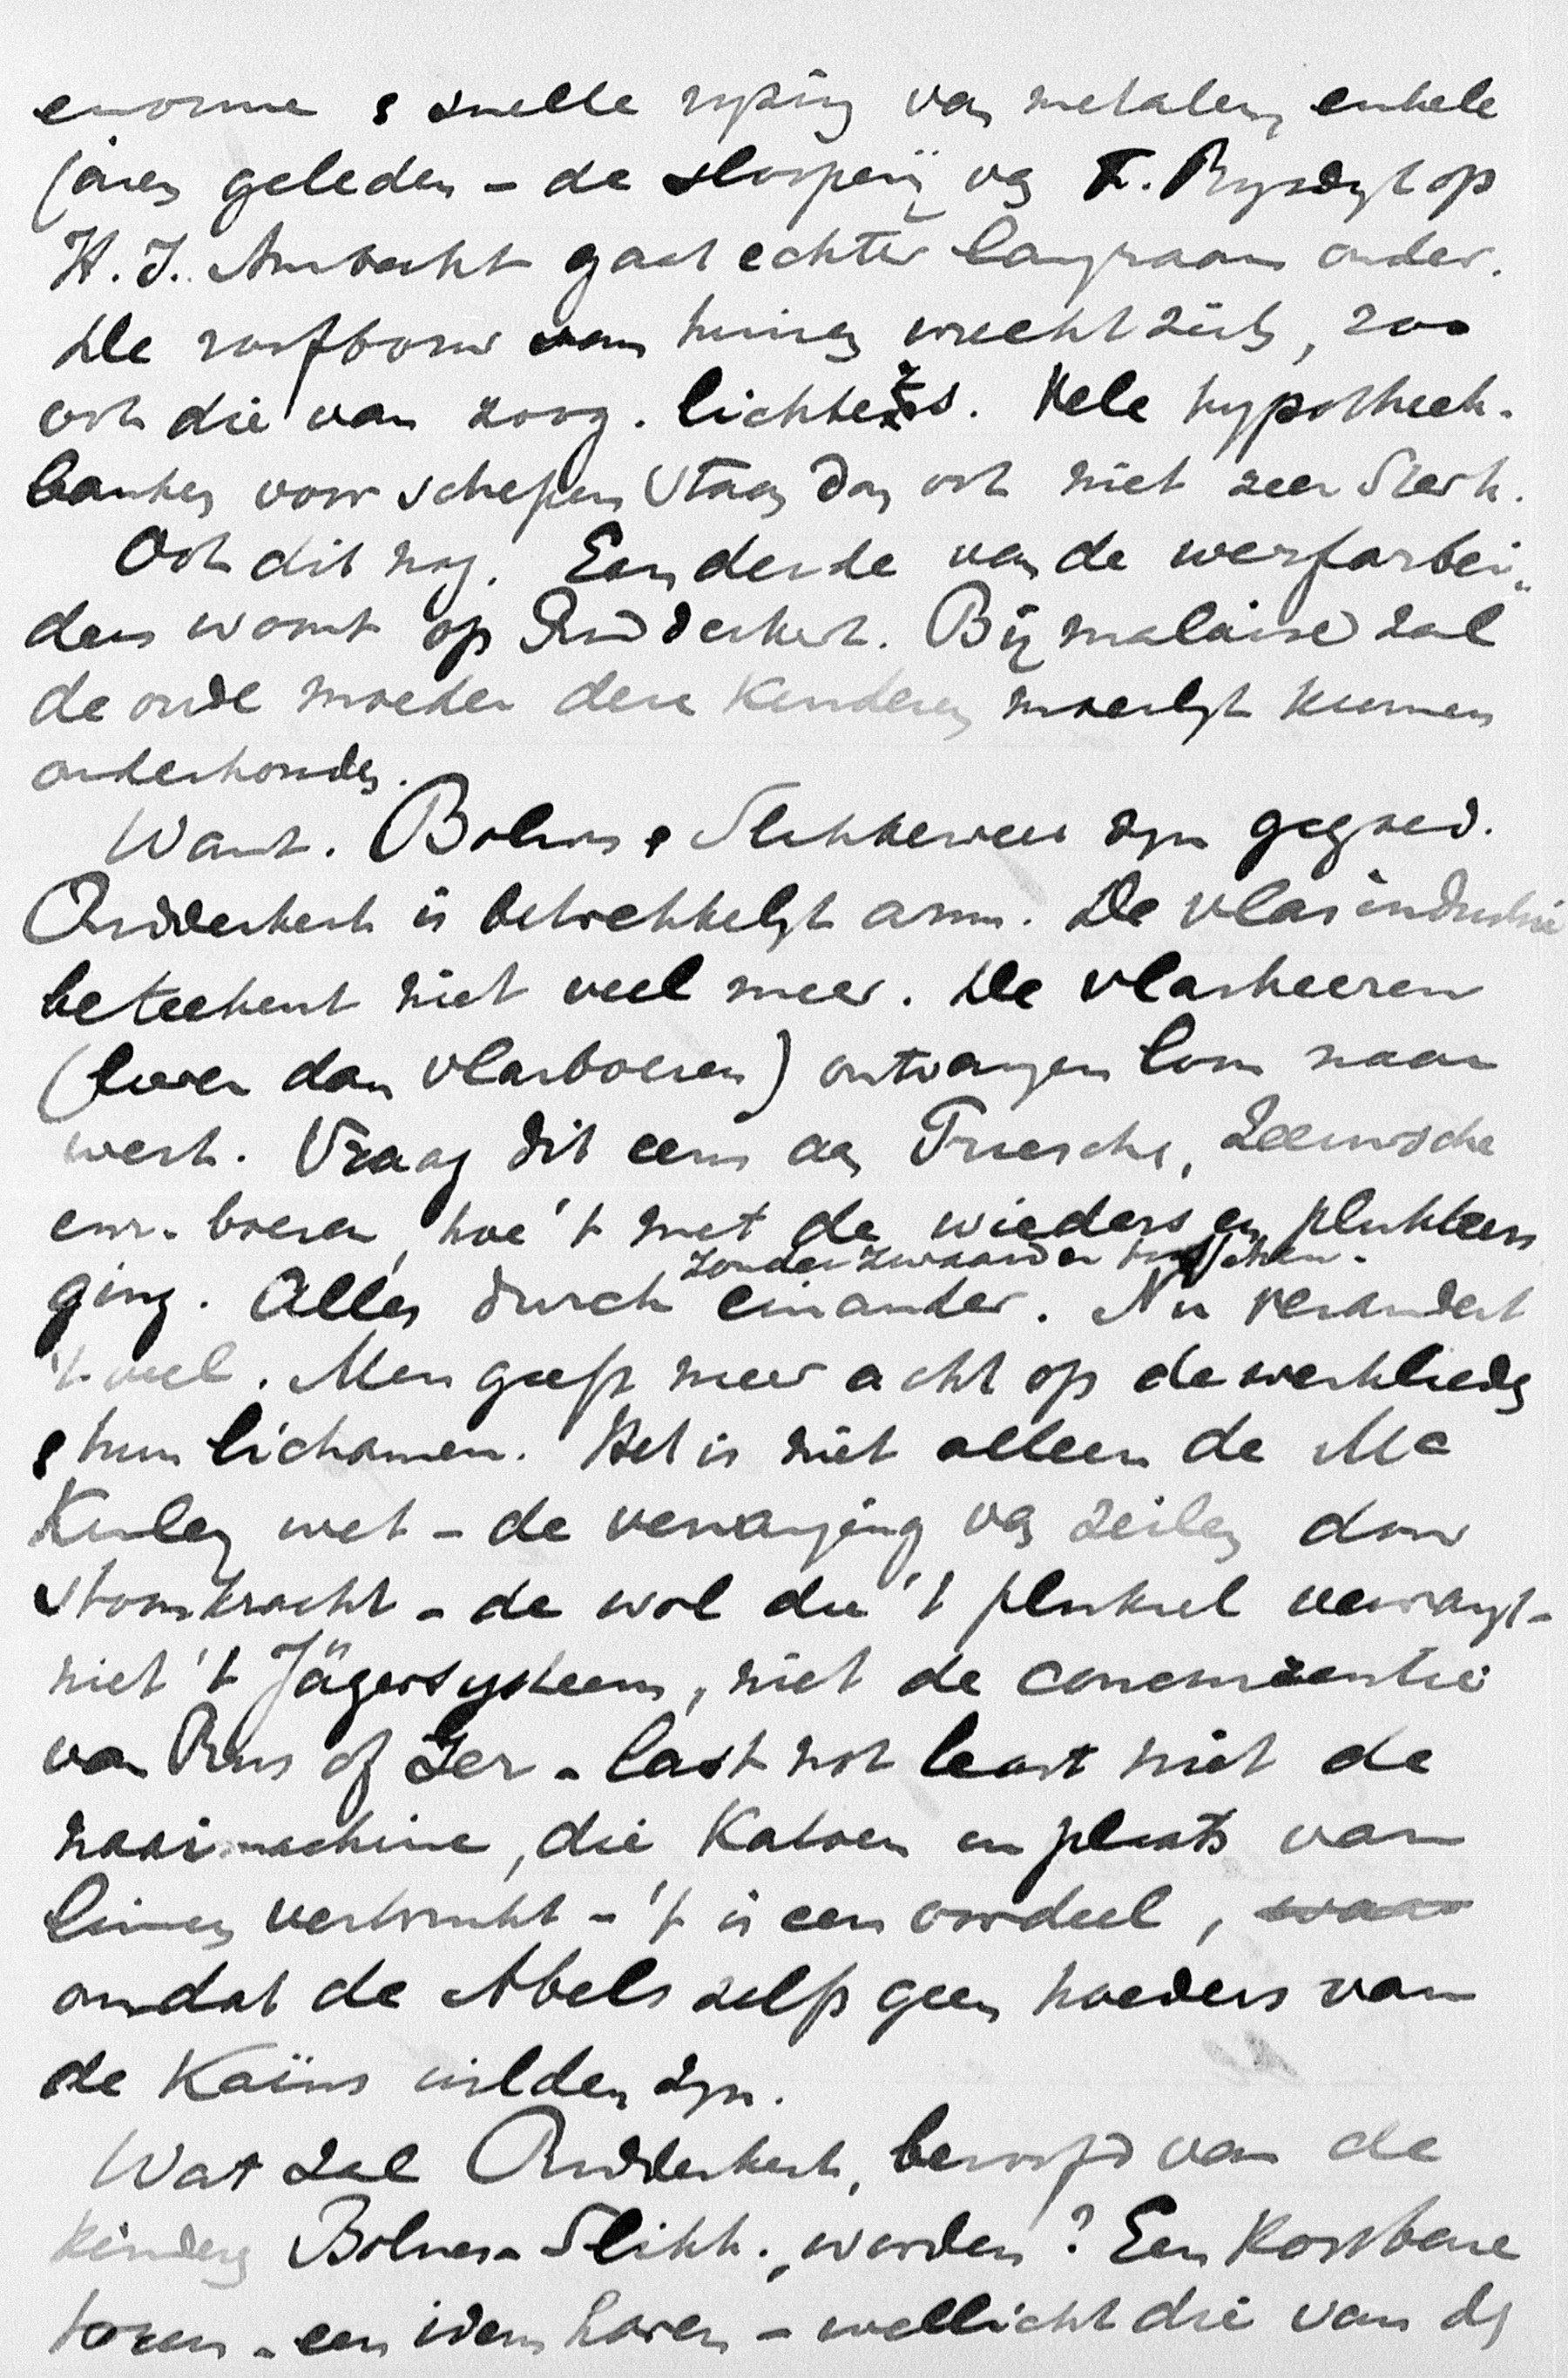 enorme & snelle rijzing van metalen, enkele
jaren geleden – de slooperij van F. Rijsdijk op
H. I. Ambacht gaat echter langzaam onder.
De roofbouw van huizen wreekt zich, zoo
ook die van zoog. lichters. Vele hypotheek-
banken voor schepen staan dan ook niet zeer sterk.
Ook dit nog. Een derde van de werfarbei-
ders woont op Ridderkerk. Bij malaise zal
de oude moeder deze kinderen moeilijk kunnen
onderhouden.
Want. Bolnes & Slikkerveer zijn gegoed.
Ridderkerk is betrekkelijk arm. De vlasindustrie
beteekent niet veel meer. De vlasheeren
(liever dan vlasboeren) ontvangen loon naar
werk. Vraag dit eens aan Friesche, Zeeuwsche
enz. boeren, hoe 't met de wieders en plukkers
ging. Alles durch einander. Nu verandert
zonder zwaarden
't veel. Men geeft meer acht op de werklieden
& hun lichamen. Het is niet alleen de Mc
Kinley wet – de vervanging van zeilen door
stoomkracht – de wol die 't pluksel vervangt –
niet 't Jägersysteem, niet de concurrentie
van Rus of Ier – last not least niet de
naaimachine, die Katoen en plaats van
linnen verbruikt – 't is een oordeel, waar
omdat de Abels zelfs geen hoeders van
de Kaïns wilden zijn.
Wat zal Ridderkerk, beroofd van de
kinderen Bolnes – Slikk., worden? Een kostbare
toren – een idem haven – wellicht die van de